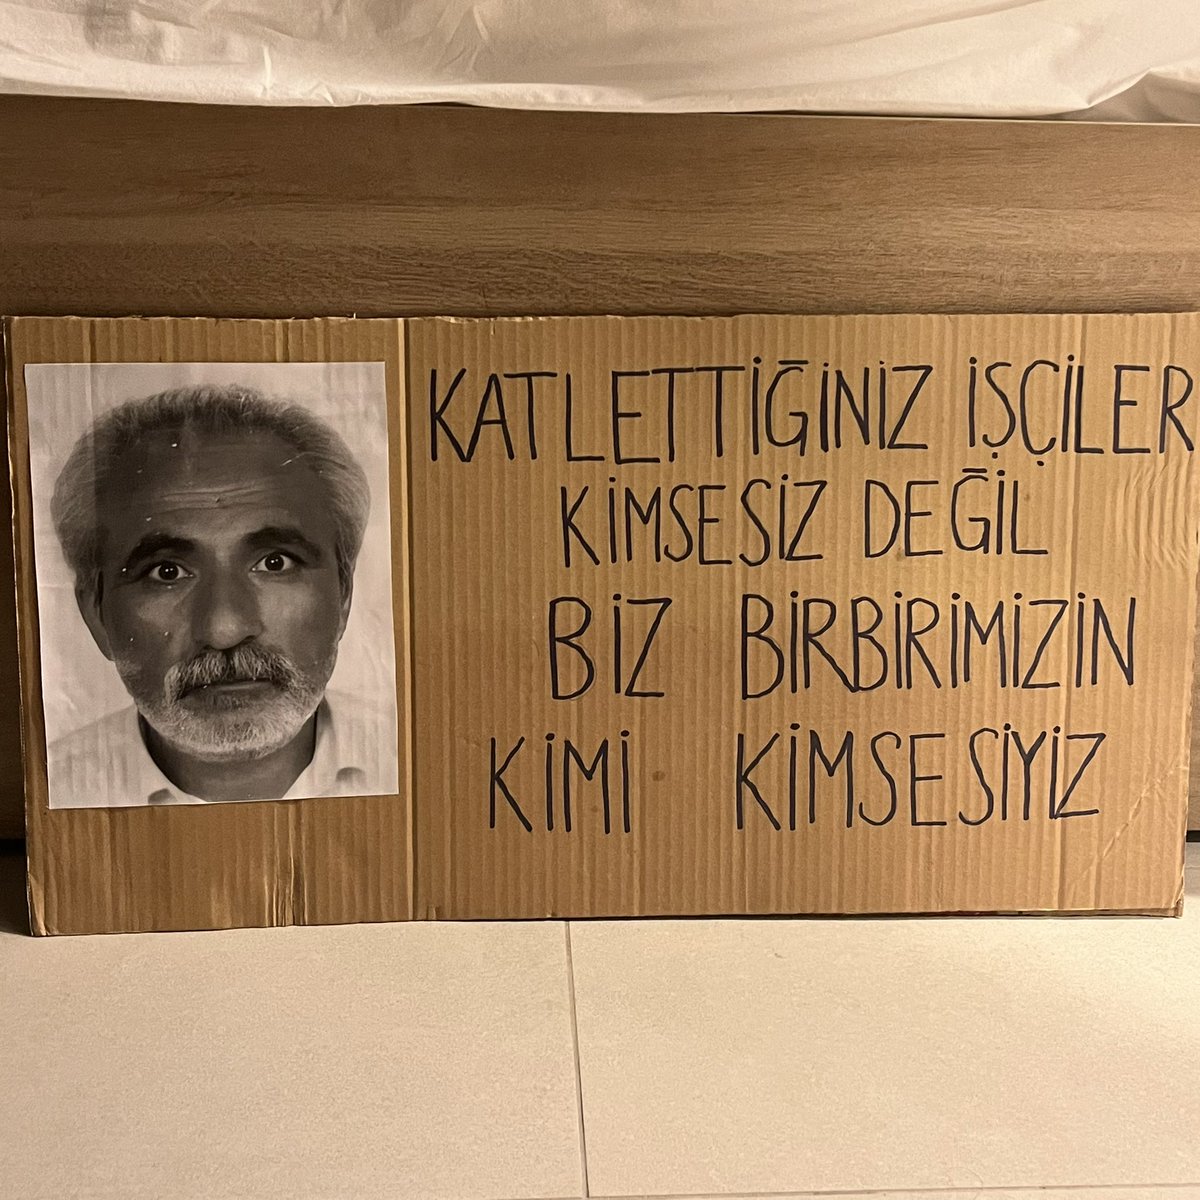 KATLETTİĞİNİZ İŞÇİLER
KİMSESİZ DEĞİL
BİZ BİRBİRİMİZİN
KİMİ KİMSESİYİZ